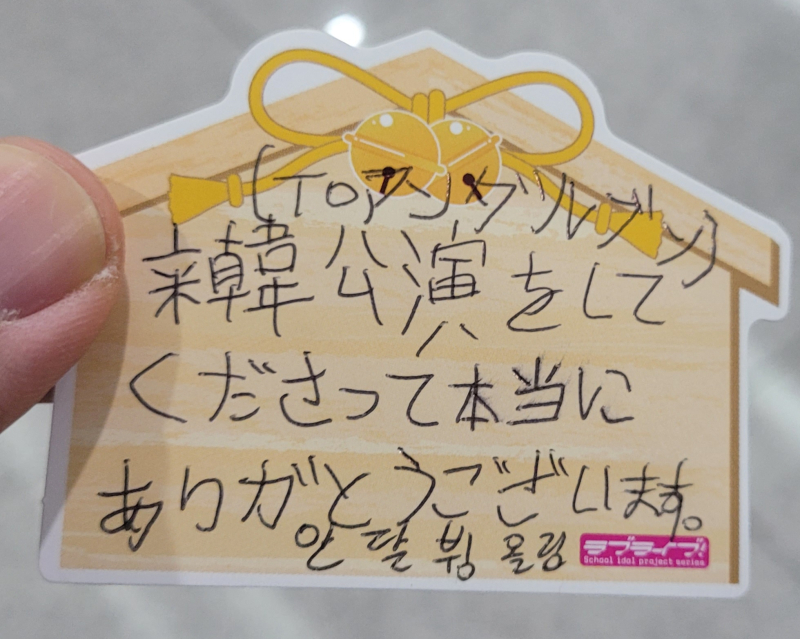 (TOアンダルブン)
来韓公演をして
くださって本当に
ありがとうございます。
안달뷩 올림
ラブライブ!
School idol project series